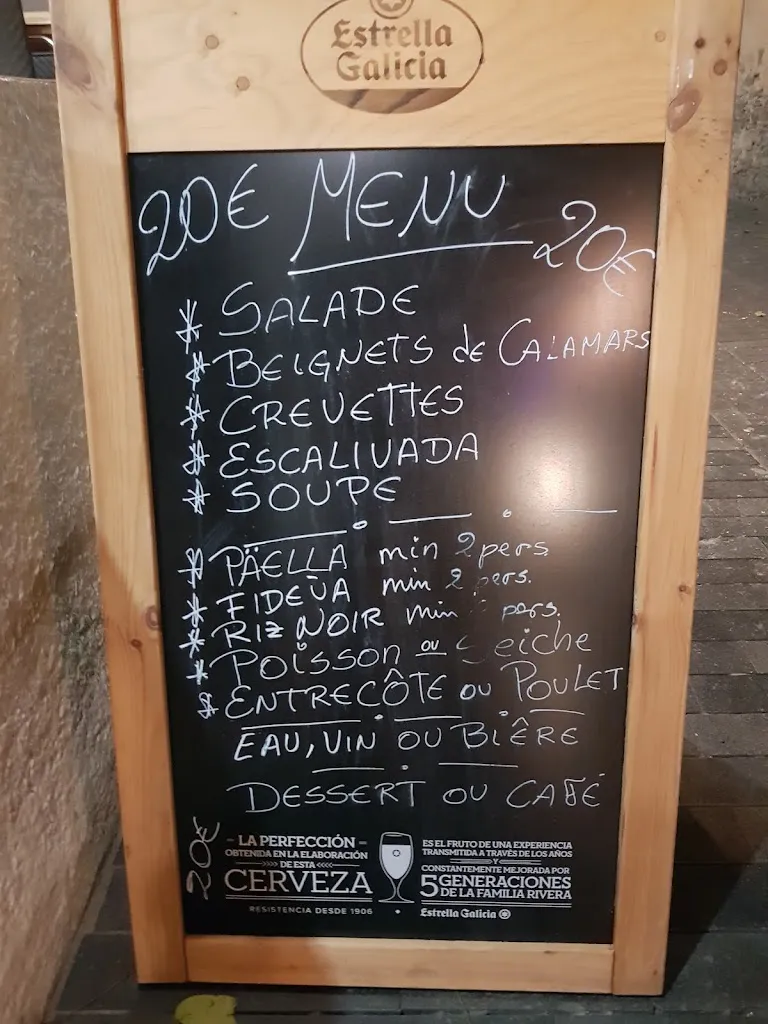 Estrella
Galicia
20€ MENU 20€
* SALADE
* BEIGNETS de CALAMARS
* CREVETTES
* ESCALIVADA
* SOUPE
* PÄELLA min 2 pers.
* FIDEÙA min 2 pers.
* RIZ NOIR min pers.
* POISSON ou Seiche
* ENTRECÔTE OU POULET
EAU, VIN OU BIÊRE
DESSERT OU CAFÉ
20€
LA PERFECCIÓN
OBTENIDA EN LA ELABORACIÓN
DE ESTA
CERVEZA
RESISTENCIA DESDE 1906
ES EL FRUTO DE UNA EXPERIENCIA
TRANSMITIDA A TRAVÉS DE LOS AÑOS
Y
CONSTANTEMENTE MEJORADA POR
5 GENERACIONES
DE LA FAMILIA RIVERA
Estrella Galicia